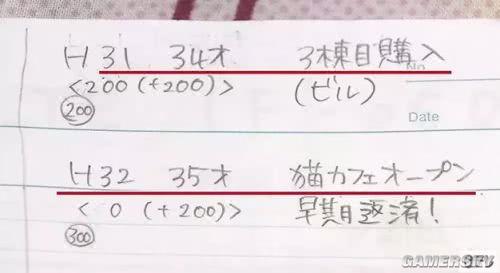 H31 34才 3棟目購入
No
<200 (+200)> (ビル)
200
Date
H32 35才 猫カフェオープン
< 0 (+200)> 早期返済!
300